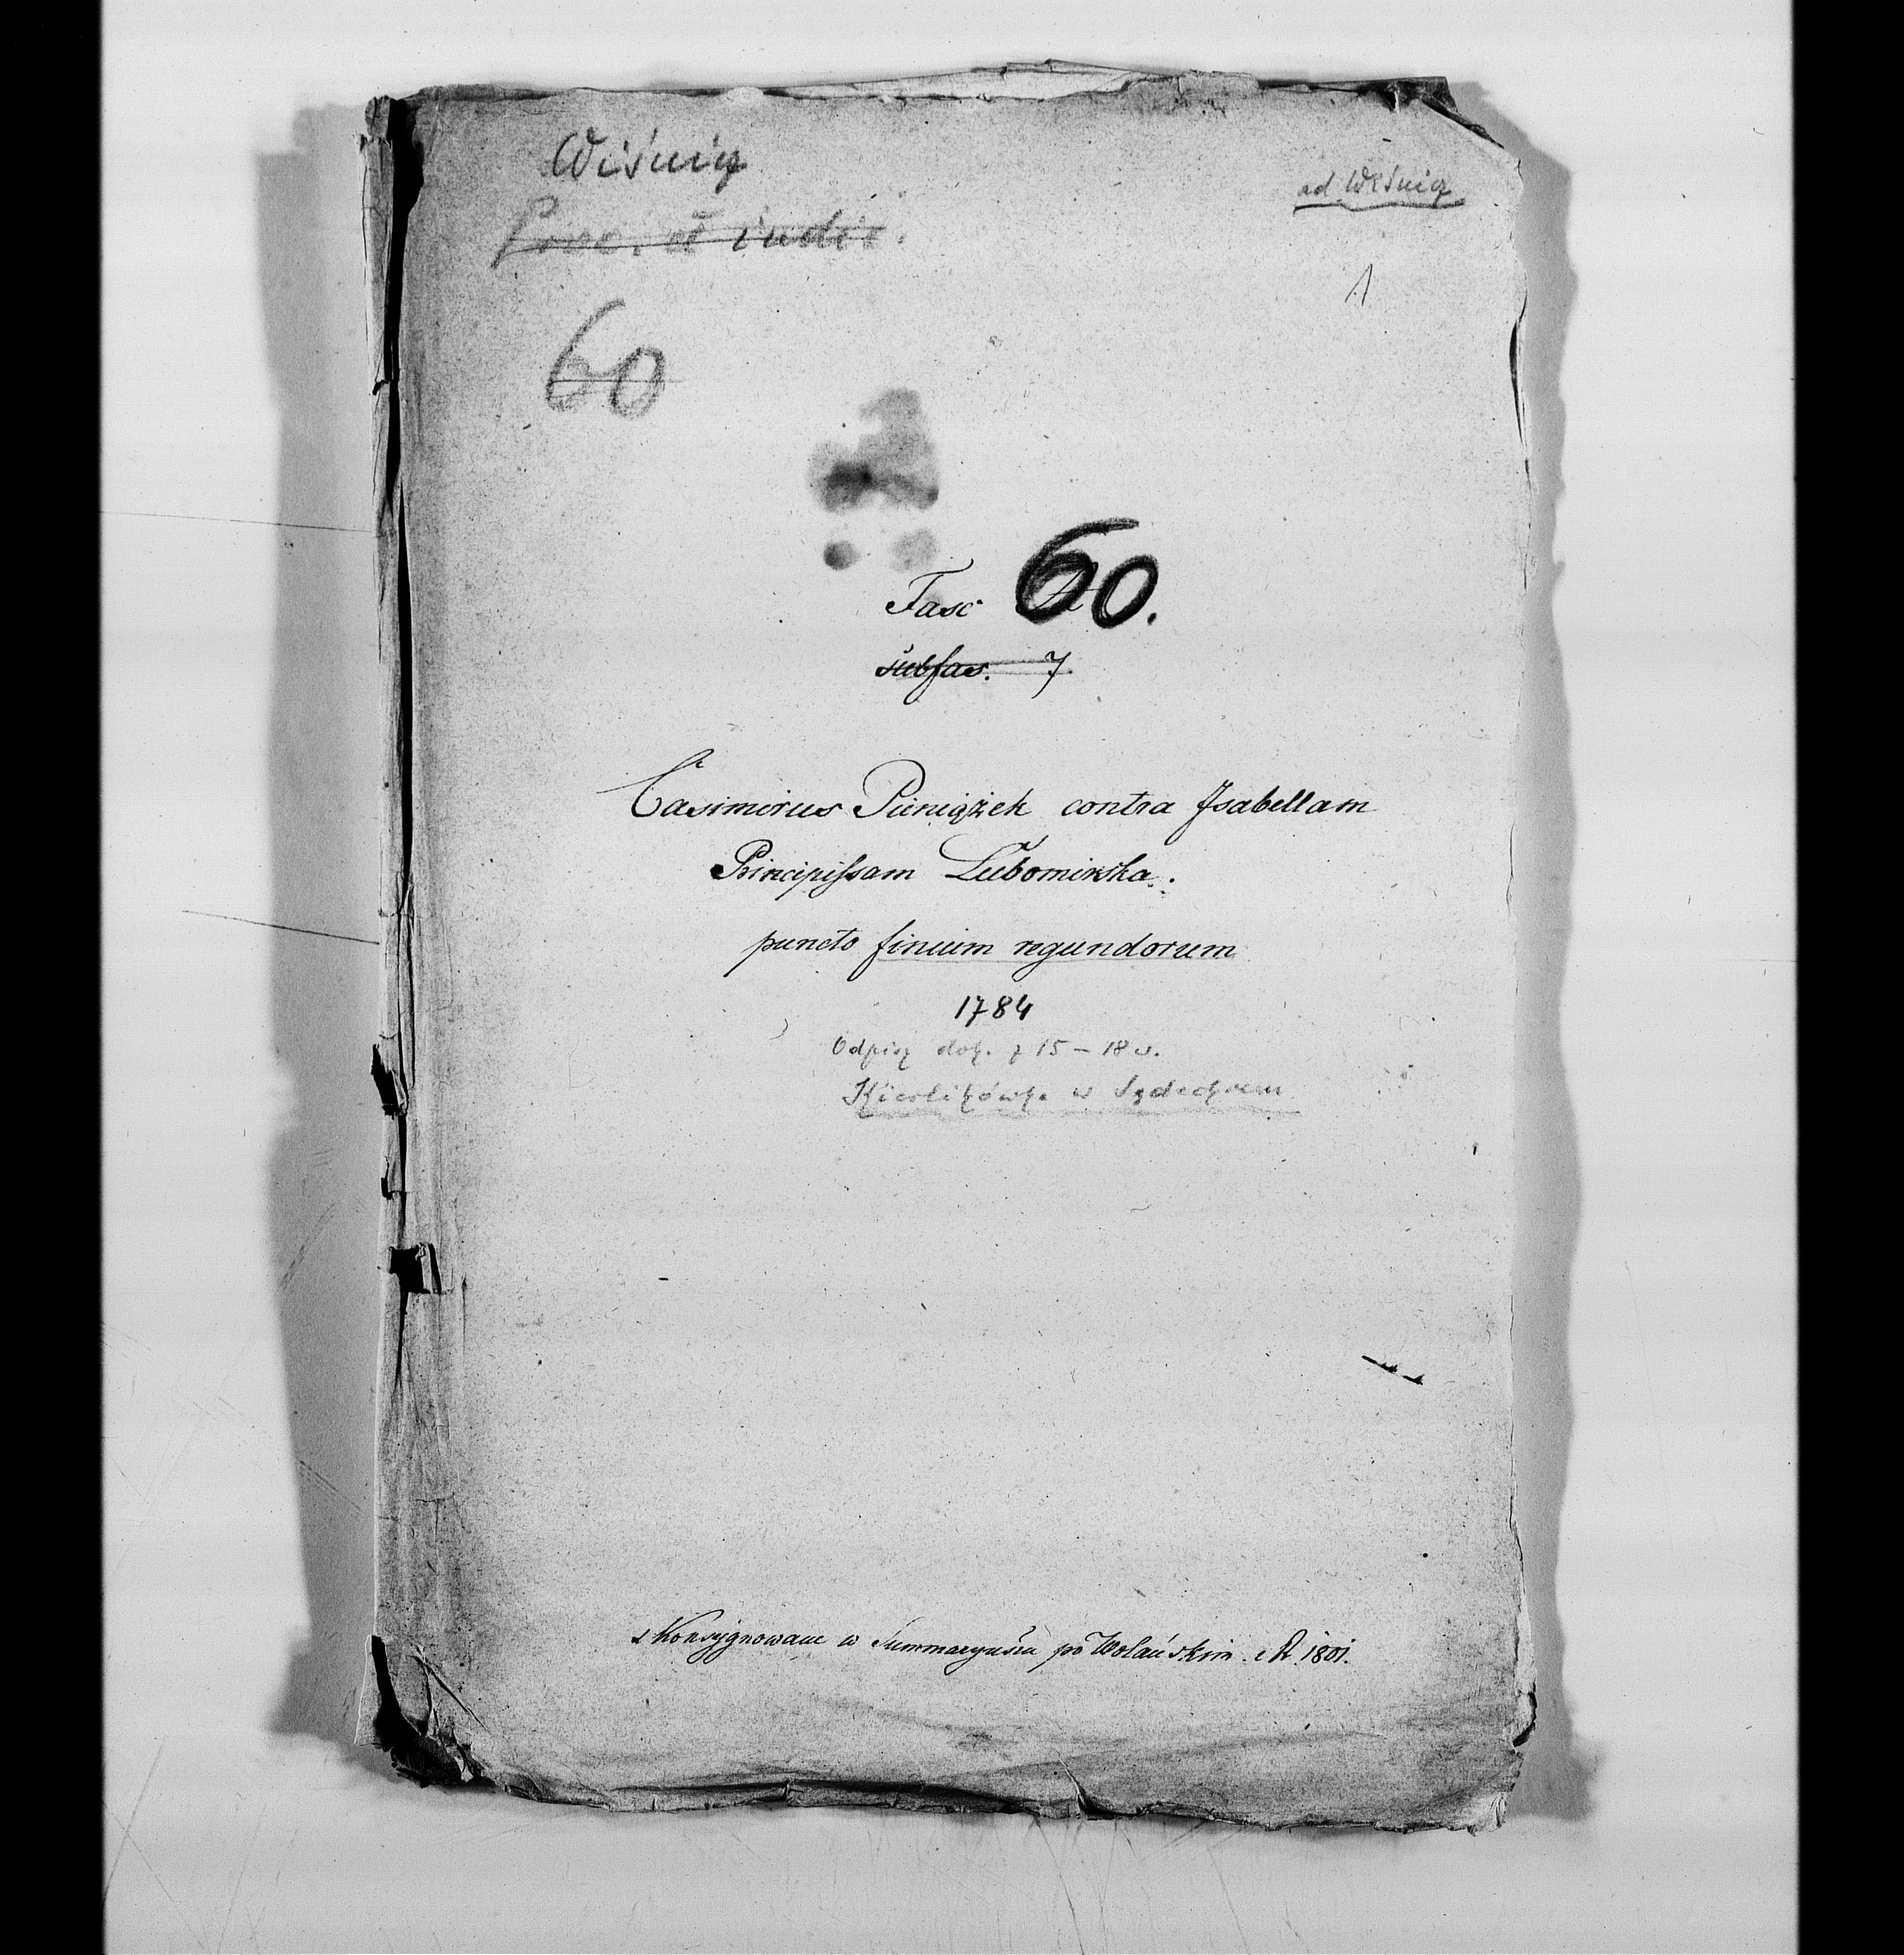 Wiśnicz
ad Wiśnicz
Proc. et iudic.
1
60
Fasc 60.
subfas. 7
Casimirus Pieniążek contra Isabellam
Principissam Lubomirska.
puncto finium regundorum
1784
Odpisy dok. z 15 – 18 w.
Kierlikówka w Sądeckiem
Konsygnowane w Summaryuszu po Wolańskim. A. 1801.